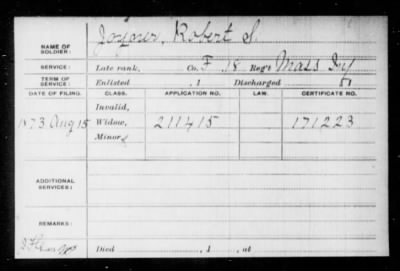 NAME OF SOLDIER: Joyner, Robert S.
SERVICE: Late rank, Co. F 18 Reg't Mass Inf
TERM OF SERVICE: Enlisted , 1 Discharged , 1
DATE OF FILING. CLASS. APPLICATION NO. LAW. CERTIFICATE NO.
Invalid,
1873 Aug 15 Widow, 211415 171223
Minors
ADDITIONAL SERVICES:
REMARKS:
Died , 1 , at